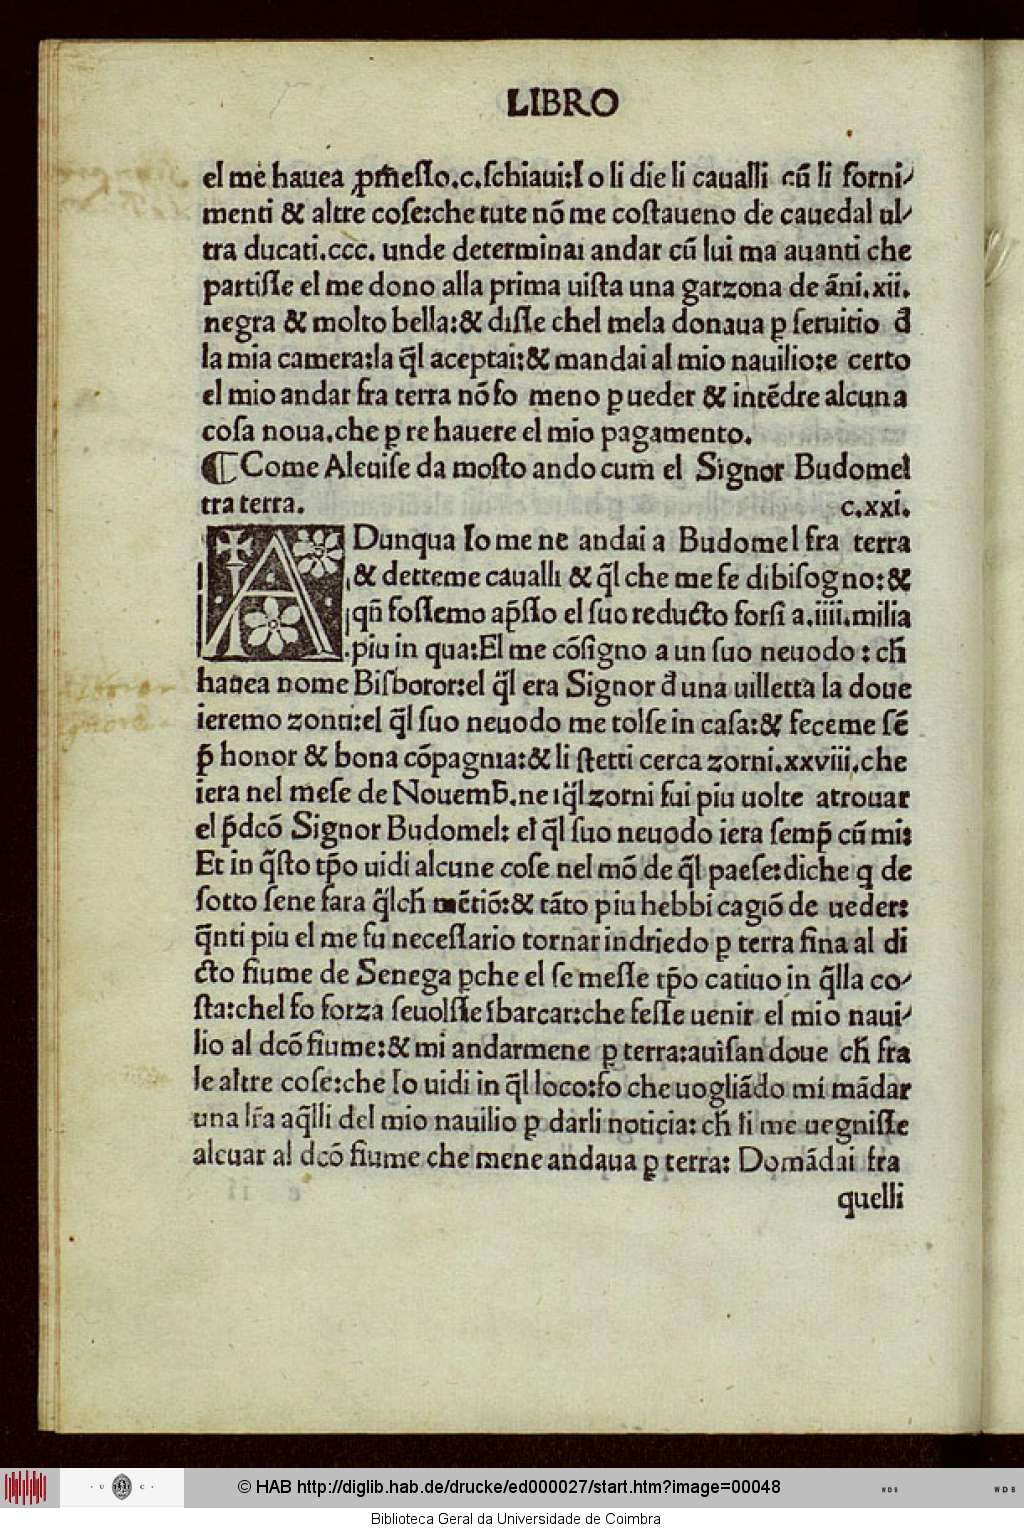 LIBRO
el me hauea ꝓmeſſo.c.ſchiaui:Io li die li caualli cū li forni⸗
menti & altre coſe:che tute nō me coſtaueno de cauedal ul⸗
tra ducati.ccc. unde determinai andar cū lui ma auanti che
partiſſe el me dono alla prima uiſta una garzona de āni.xii.
negra & molto bella:& diſſe chel mela donaua ꝑ ſeruitio đ
la mia camera:la q̄l aceptai:& mandai al mio nauilio:e certo
el mio andar fra terra nō fo meno ꝑ ueder & intēdre alcuna
coſa noua.che ꝑ re hauere el mio pagamento.
¶Come Aleuiſe da moſto ando cum el Signor Budomel
tra terra. c.xxi.
ADunqua Io me ne andai a Budomel fra terra
& detteme caualli & q̄l che me fe dibiſogno:&
qn̄ foſſemo ap̄ſſo el ſuo reducto forſi a.iiii.milia
piu in qua:El me cōſigno a un ſuo neuodo : ch̄
hauea nome Biſboror:el q̄l era Signor đ una uilletta la doue
ieremo zonti:el q̄l ſuo neuodo me tolſe in caſa:& feceme ſē
p̄ honor & bona cōpagnia:& li ſtetti cerca zorni.xxviii.che
iera nel meſe de Nouemƀ.ne iq̄l zorni fui piu uolte atrouar
el p̄dcō Signor Budomel: el q̄l ſuo neuodo iera ſemp̄ cū mi:
Et in q̄ſto tp̄o uidi alcune coſe nel mō de q̄l paeſe:diche q de
ſotto ſene fara q̄lch̄ mētiō:& tāto piu hebbi cagiō de ueder:
q̄nti piu el me fu neceſſario tornar indriedo ꝑ terra fina al di
cto fiume de Senega ꝑche el ſe meſſe tp̄o catiuo in q̄lla co⸗
ſta:chel fo forza ſeuolſſe iſbarcar:che feſſe uenir el mio naui⸗
lio al dcō fiume:& mi andarmene ꝑ terra:auiſan doue ch̄ fra
le altre coſe:che Io uidi in q̄l loco:fo che uogliādo mi mādar
una lr̄a aq̄lli del mio nauilio ꝑ darli noticia: ch̄ li me uegniſſe
aleuar al dcō fiume che mene andaua ꝑ terra: Domādai fra
quelli
© HAB http://diglib.hab.de/drucke/ed000027/start.htm?image=00048
Biblioteca Geral da Universidade de Coimbra